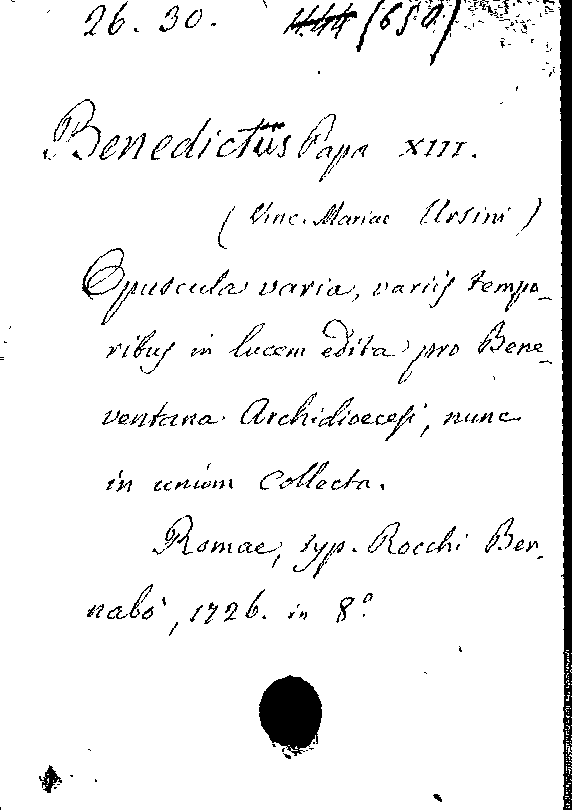 26. 30. (650)
Benedictus Papa XIII.
(Vinc. Mariae Ursini)
Opuscula varia, variis tempo-
ribus in lucem edita pro Bene-
ventana Archidioecesi, nunc
in unum collecta.
Romae, typ. Rocchi Ber-
nabò, 1726. in 8º